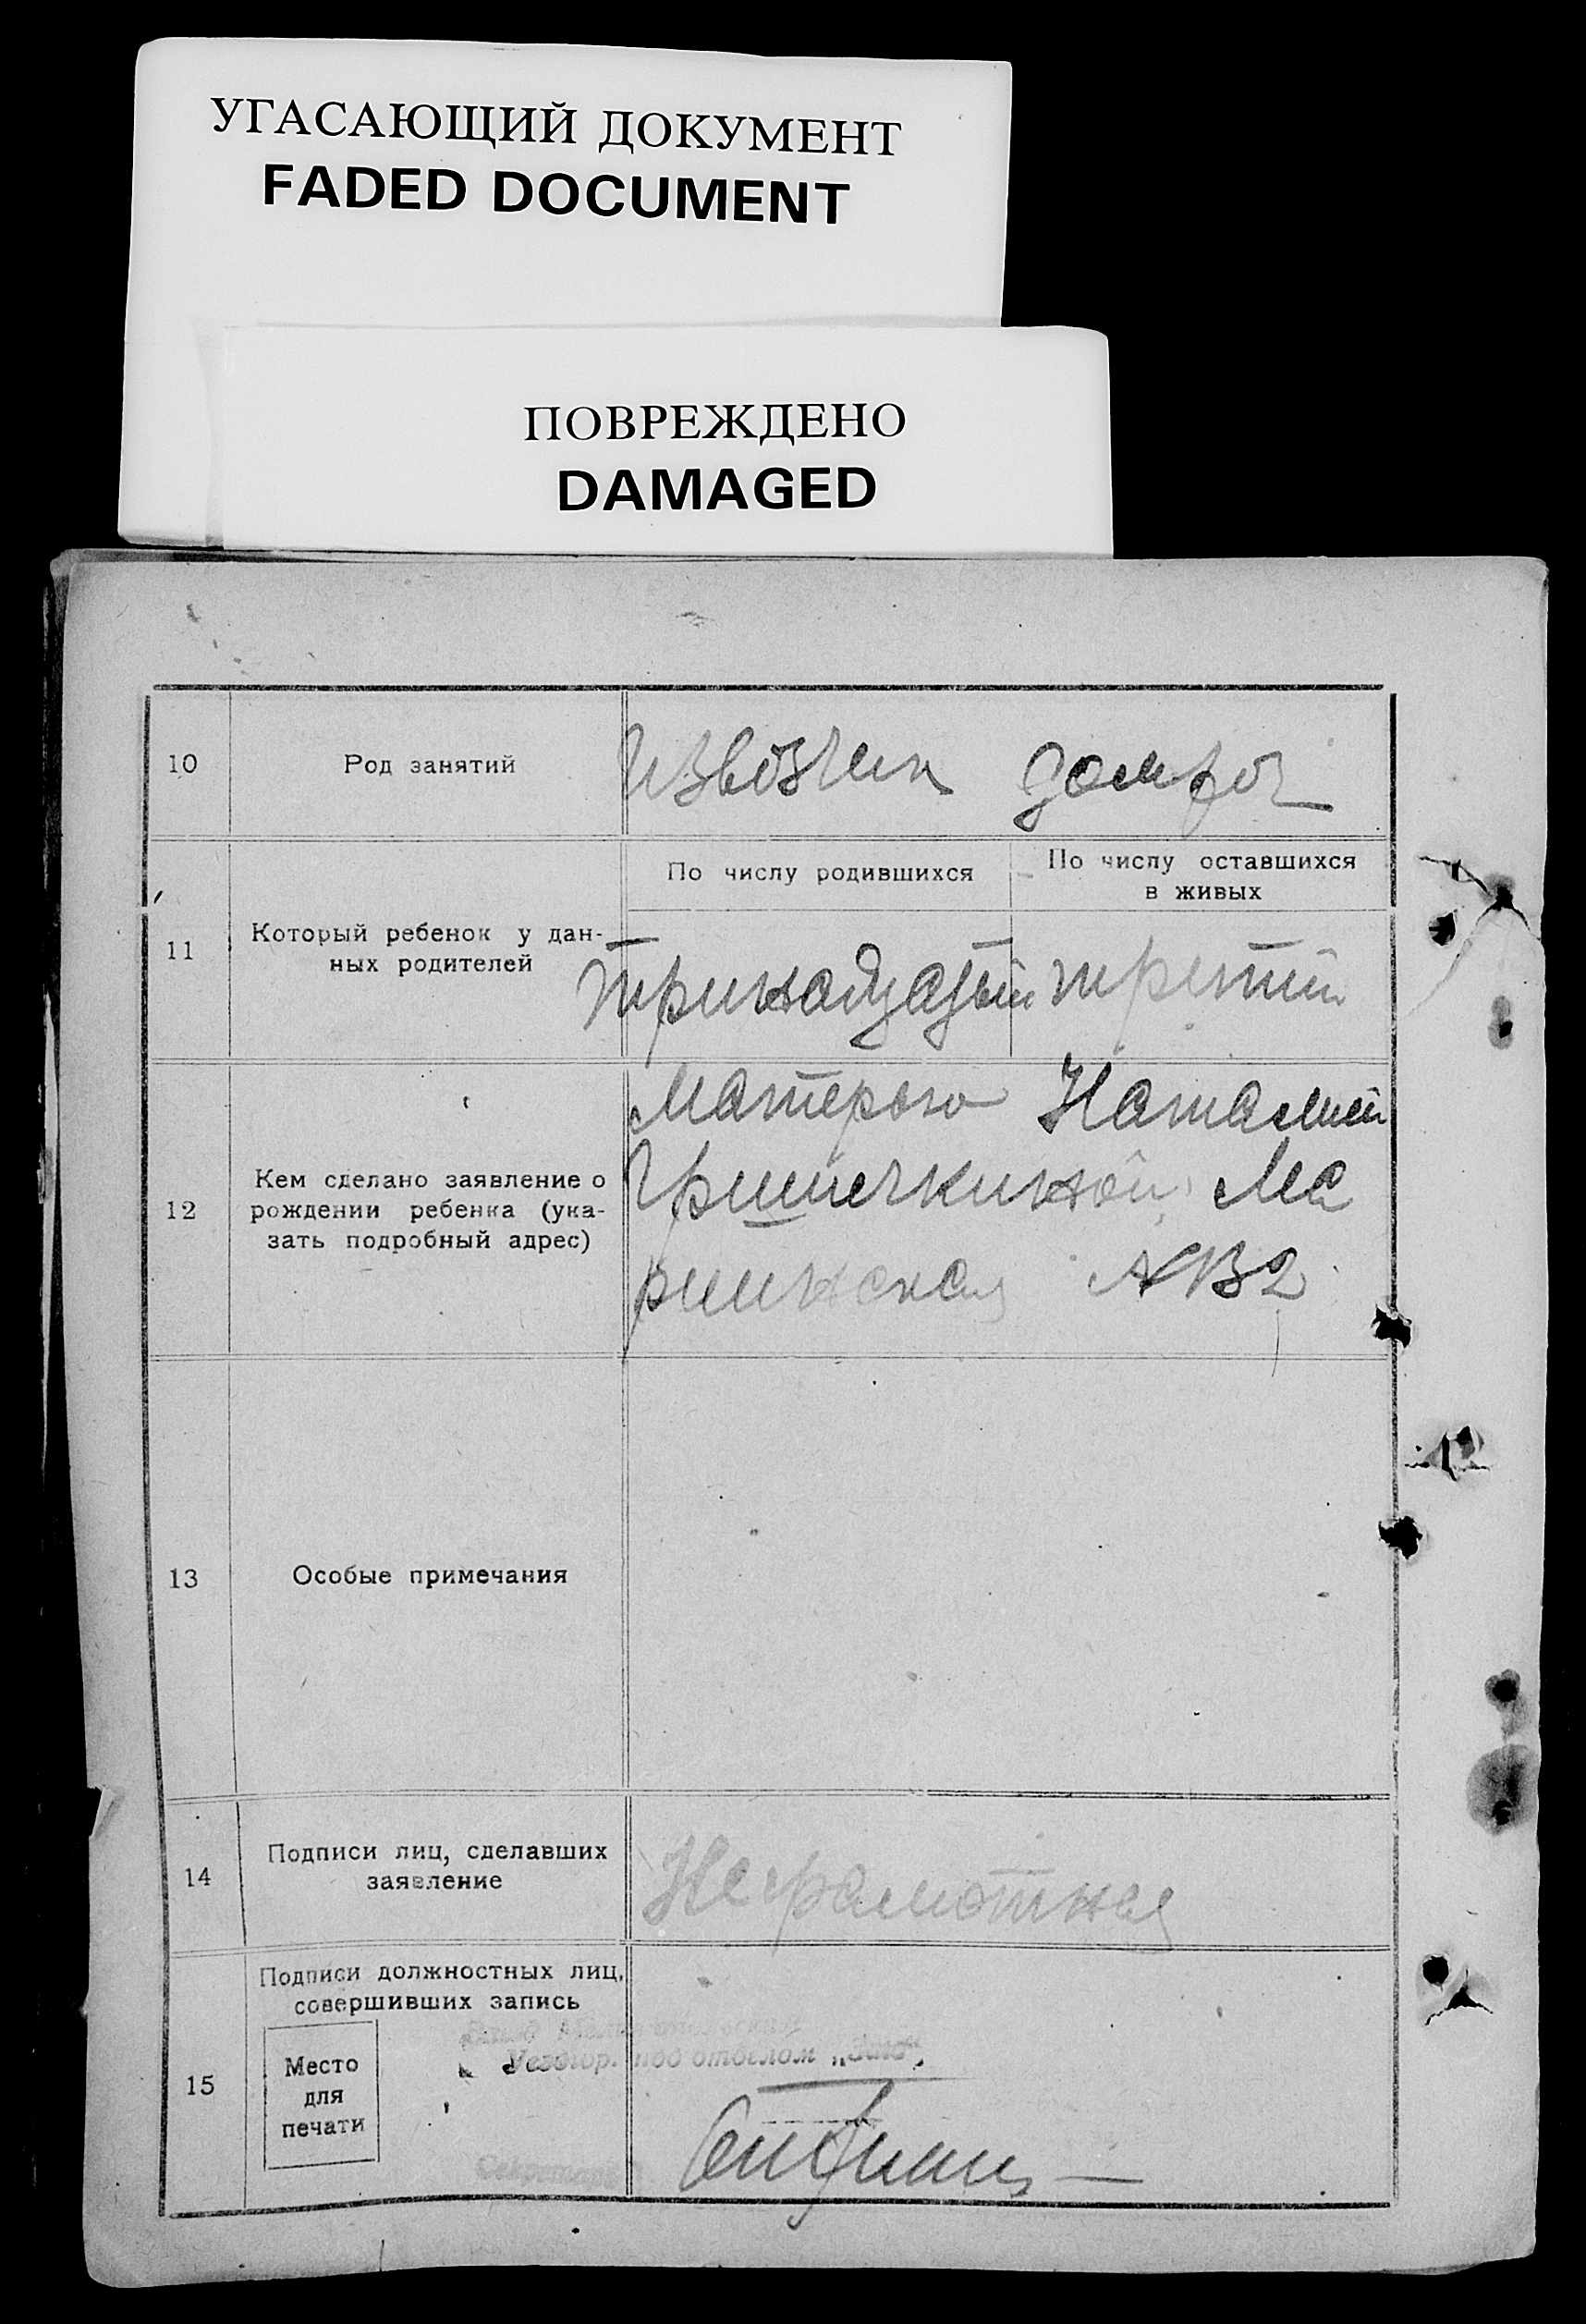 УГАСАЮЩИЙ ДОКУМЕНТ
FADED DOCUMENT
ПОВРЕЖДЕНО
DAMAGED
10
Род занятий
Извозчик
домхоз
11
Который ребенок у дан-
ных родителей
По числу родившихся
По числу оставшихся
в живых
тринадцатый
третий
12
Кем сделано заявление о
рождении ребенка (ука-
зать подробный адрес)
Матерью Наталией
Гришечкиной Ма
риинская
13
Особые примечания
14
Подписи лиц, сделавших
заявление
Неграмотная
15
Подписи должностных лиц,
совершивших запись
Место
для
печати
под отделом „Загс“
Секретарь